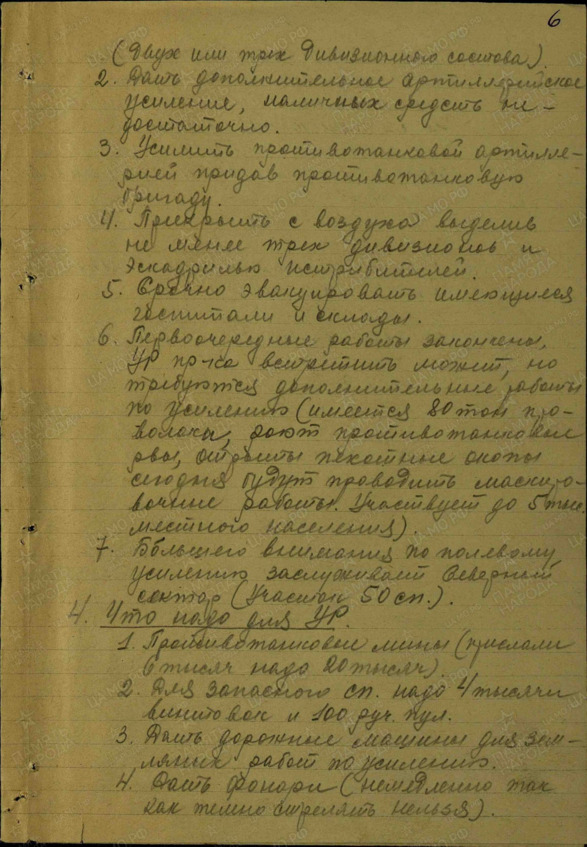 6
(Двух или трех Дивизионного состава).
2. Дать дополнительное артиллерийское
усиление, наличных средств не-
достаточно.
3. Усилить противотанковой артилле-
рией придав противотанковую
бригаду.
4. Прикрыть с воздуха выделив
не менее трех дивизионов и
эскадрилью истребителей.
5. Срочно эвакуировать имеющиеся
госпитали и склады.
6. Первоочередные работы закончены,
УР пр-ка встретить может, но
требуются дополнительные работы
по усилению (имеется 80 тонн про-
волоки, роют противотанковые
рвы, отрыты пехотные окопы
сегодня будут проводить маскиро-
вочные работы. Участвует до 5 тыс.
местного населения).
7. Большего внимания по полевому
усилению заслуживает Северный
сектор (Участок 50 сп.).
4. Что надо для УР.
1. Противотанковые мины (прислали
6 тысяч надо 20 тысяч).
2. Для запасного сп. надо 4 тысячи
винтовок и 100 руч. пул.
3. Дать дорожные машины для зем-
ляных работ по усилению.
4. Дать фонари (немедленно так
как темно стрелять нельзя).